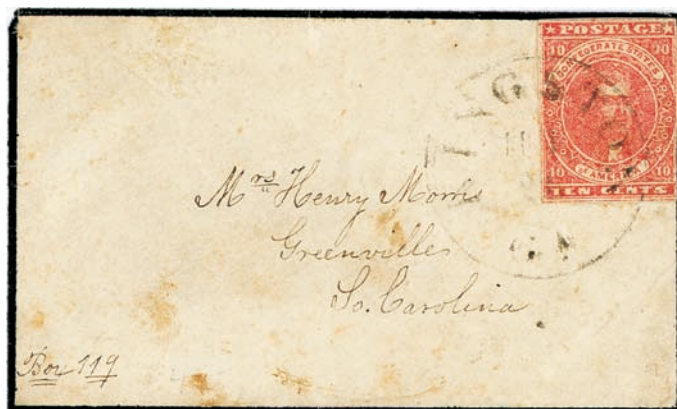 ★ POSTAGE ★
10 CONFEDERATE STATES 10
10 OF AMERICA 10
TEN CENTS
Mrs Henry Morris
Greenville
So. Carolina
Box 119